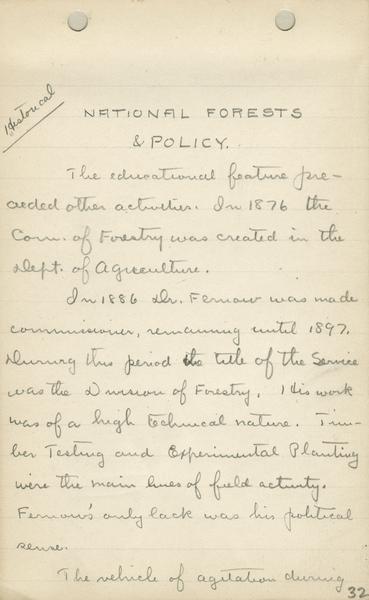 Historical
NATIONAL FORESTS
& POLICY.
The educational feature pre-
ceded other activities. In 1876 the
Com. of Forestry was created in the
Dept. of Agriculture.
In 1886 Dr. Fernow was made
commissioner, remaining until 1897.
During this period the title of the Service
was the Division of Forestry. His work
was of a high technical nature. Tim-
ber Testing and Experimental Planting
were the main lines of field activity.
Fernow's only lack was his political
sense.
The vehicle of agitation during
32